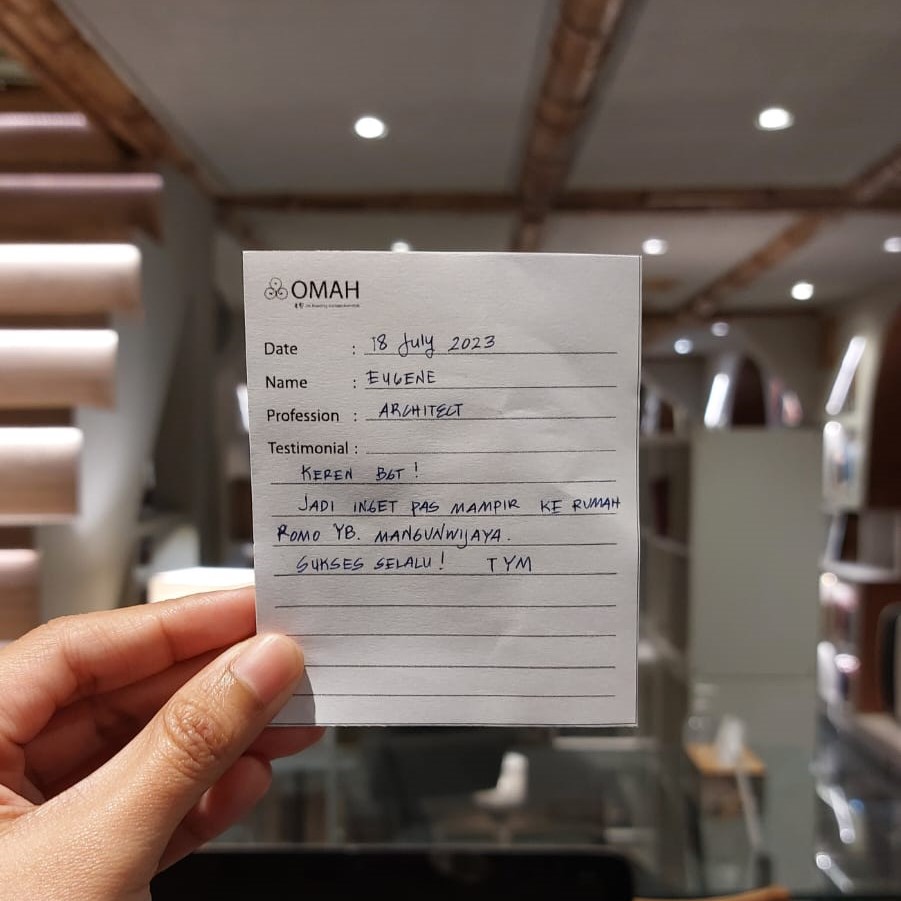 OMAH
Date : 18 July 2023
Name : EUGENE
Profession : ARCHITECT
Testimonial :
KEREN BGT!
JADI INGET PAS MAMPIR KE RUMAH
ROMO YB. MANGUNWIJAYA.
SUKSES SELALU! TYM